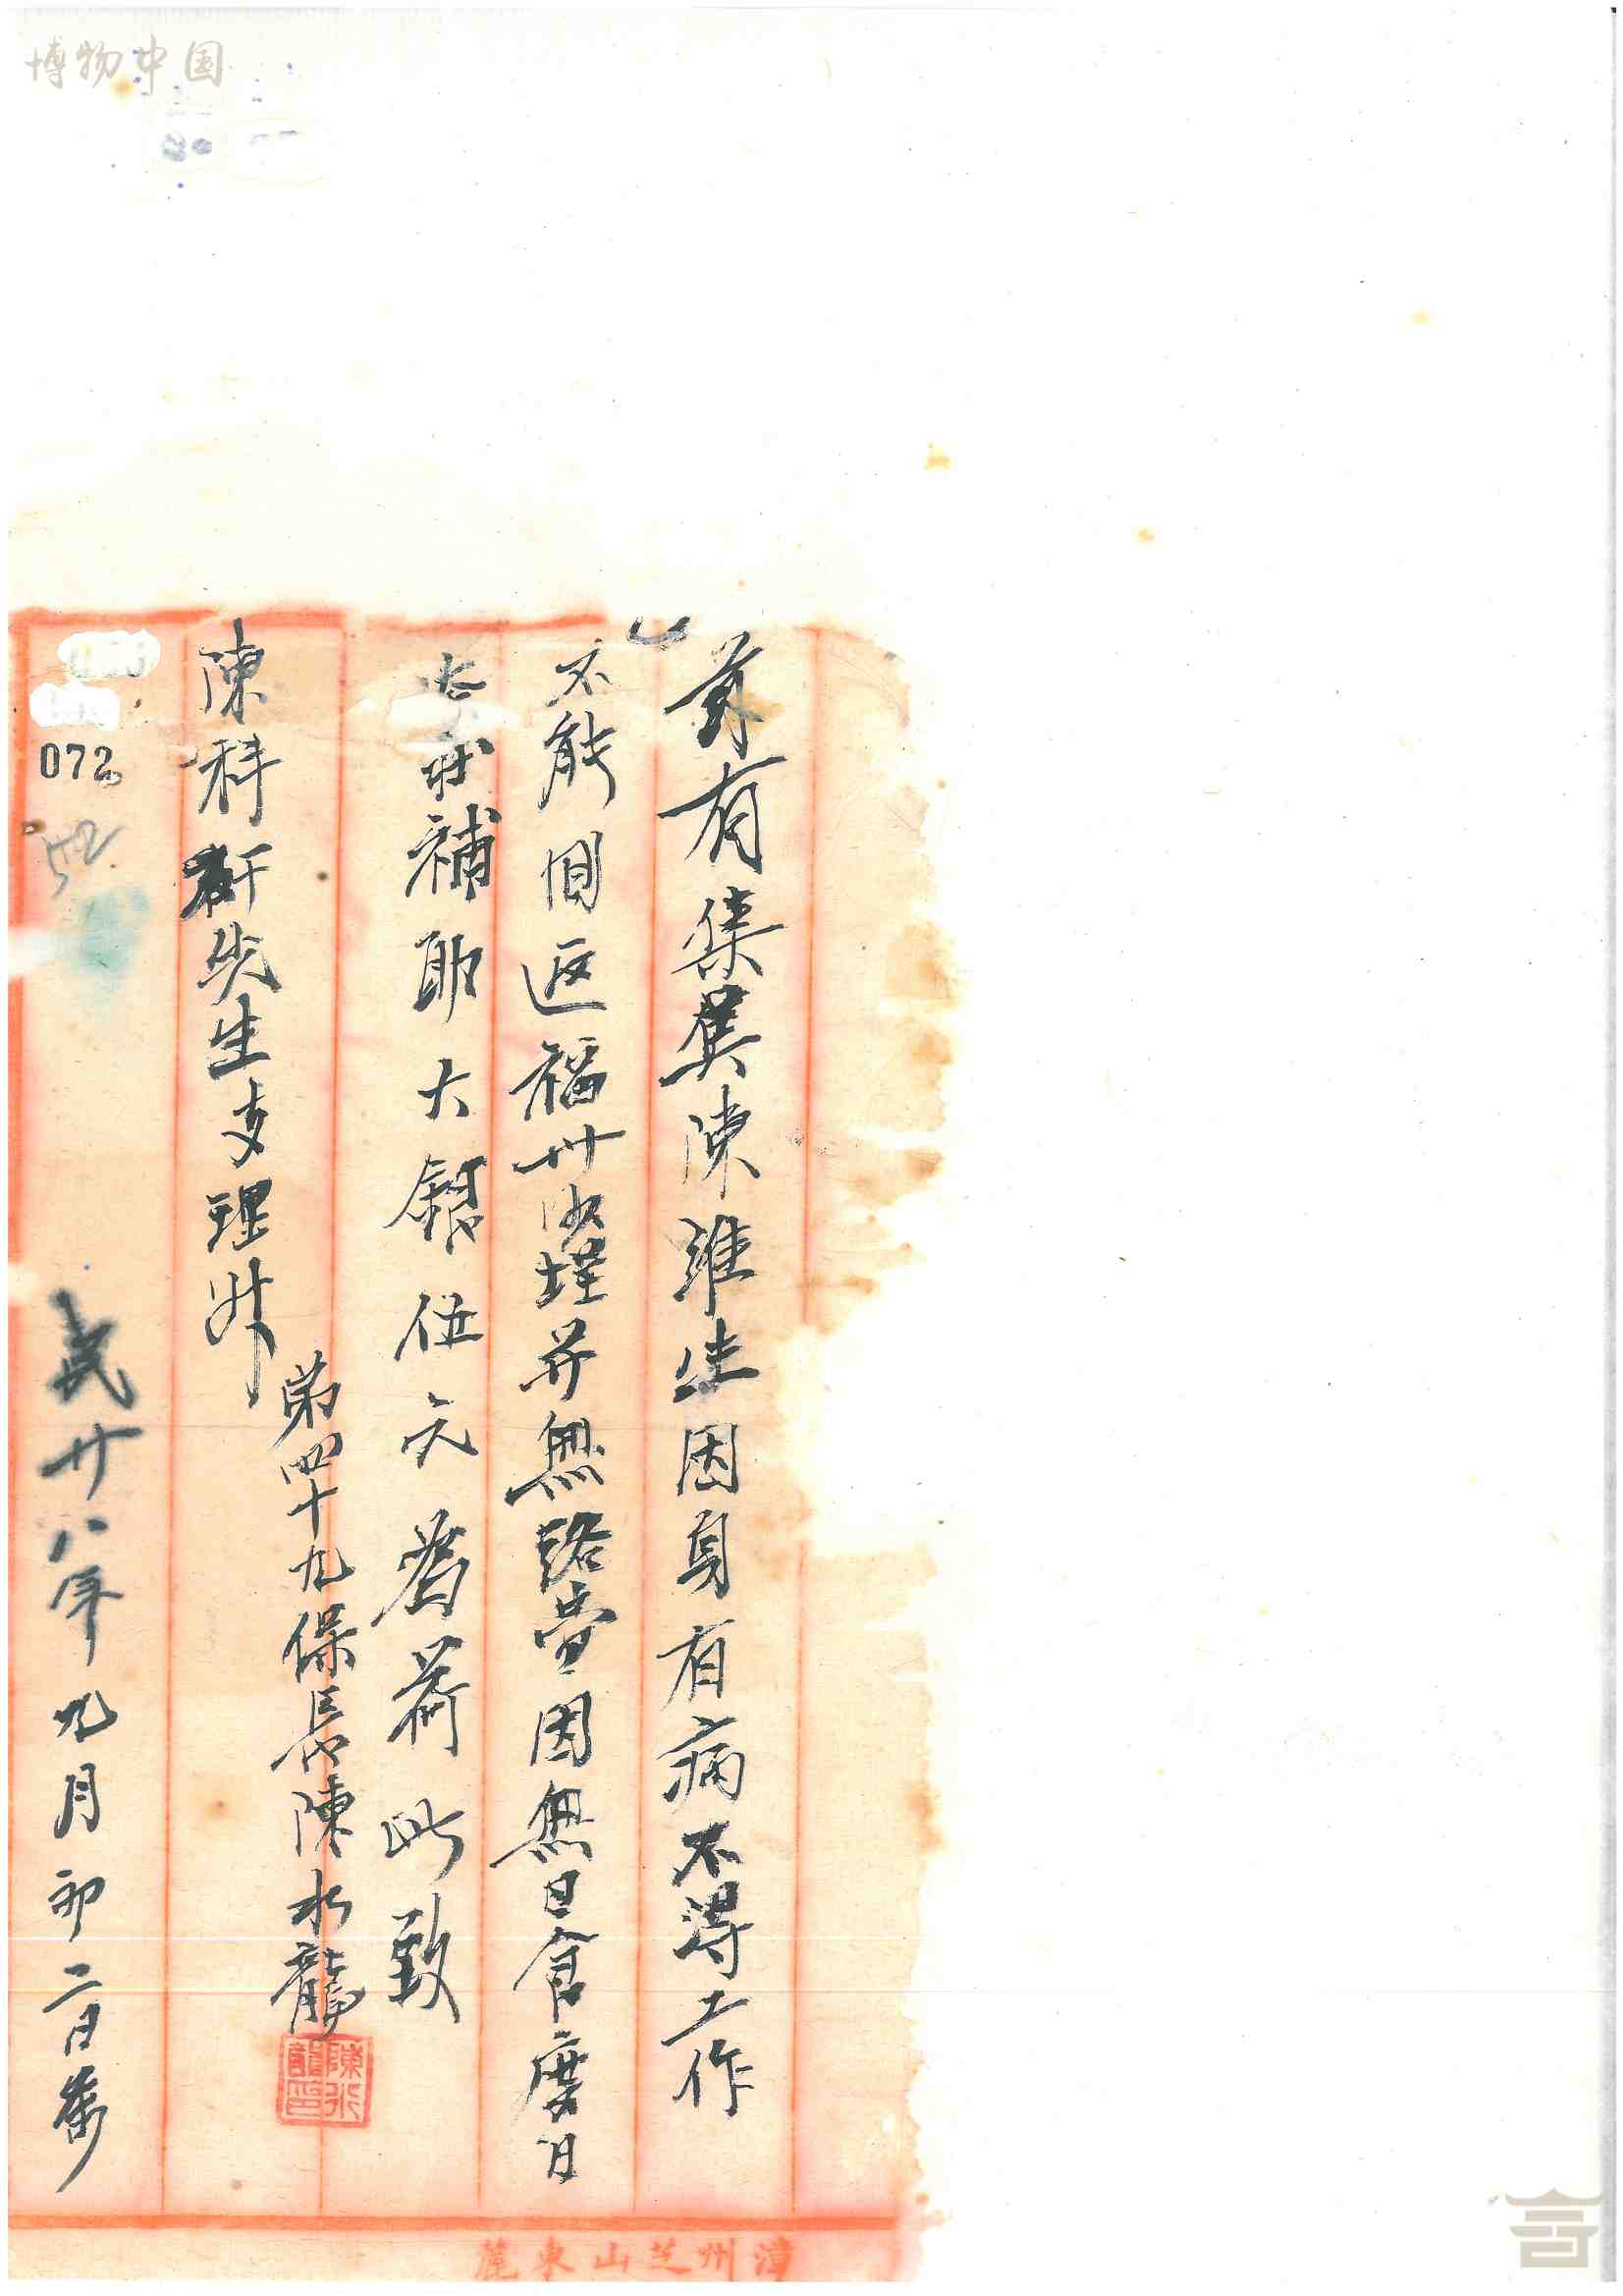 博物中国
茲有集美陳維生因身有病不得工作
不能回返福州後埕并無路費因無日食度日
補助大銀伍元為荷此致
陳科軒先生支理升
第四十九保長陳水龍
民廿八年九月初二日
072
漳州芝山東麓